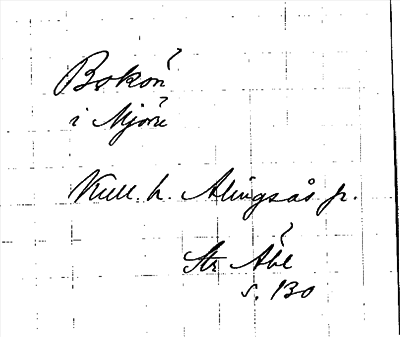 Bokön
i Mjörn
Kull. h. Alingsås jr.
Str Abl
s. 130